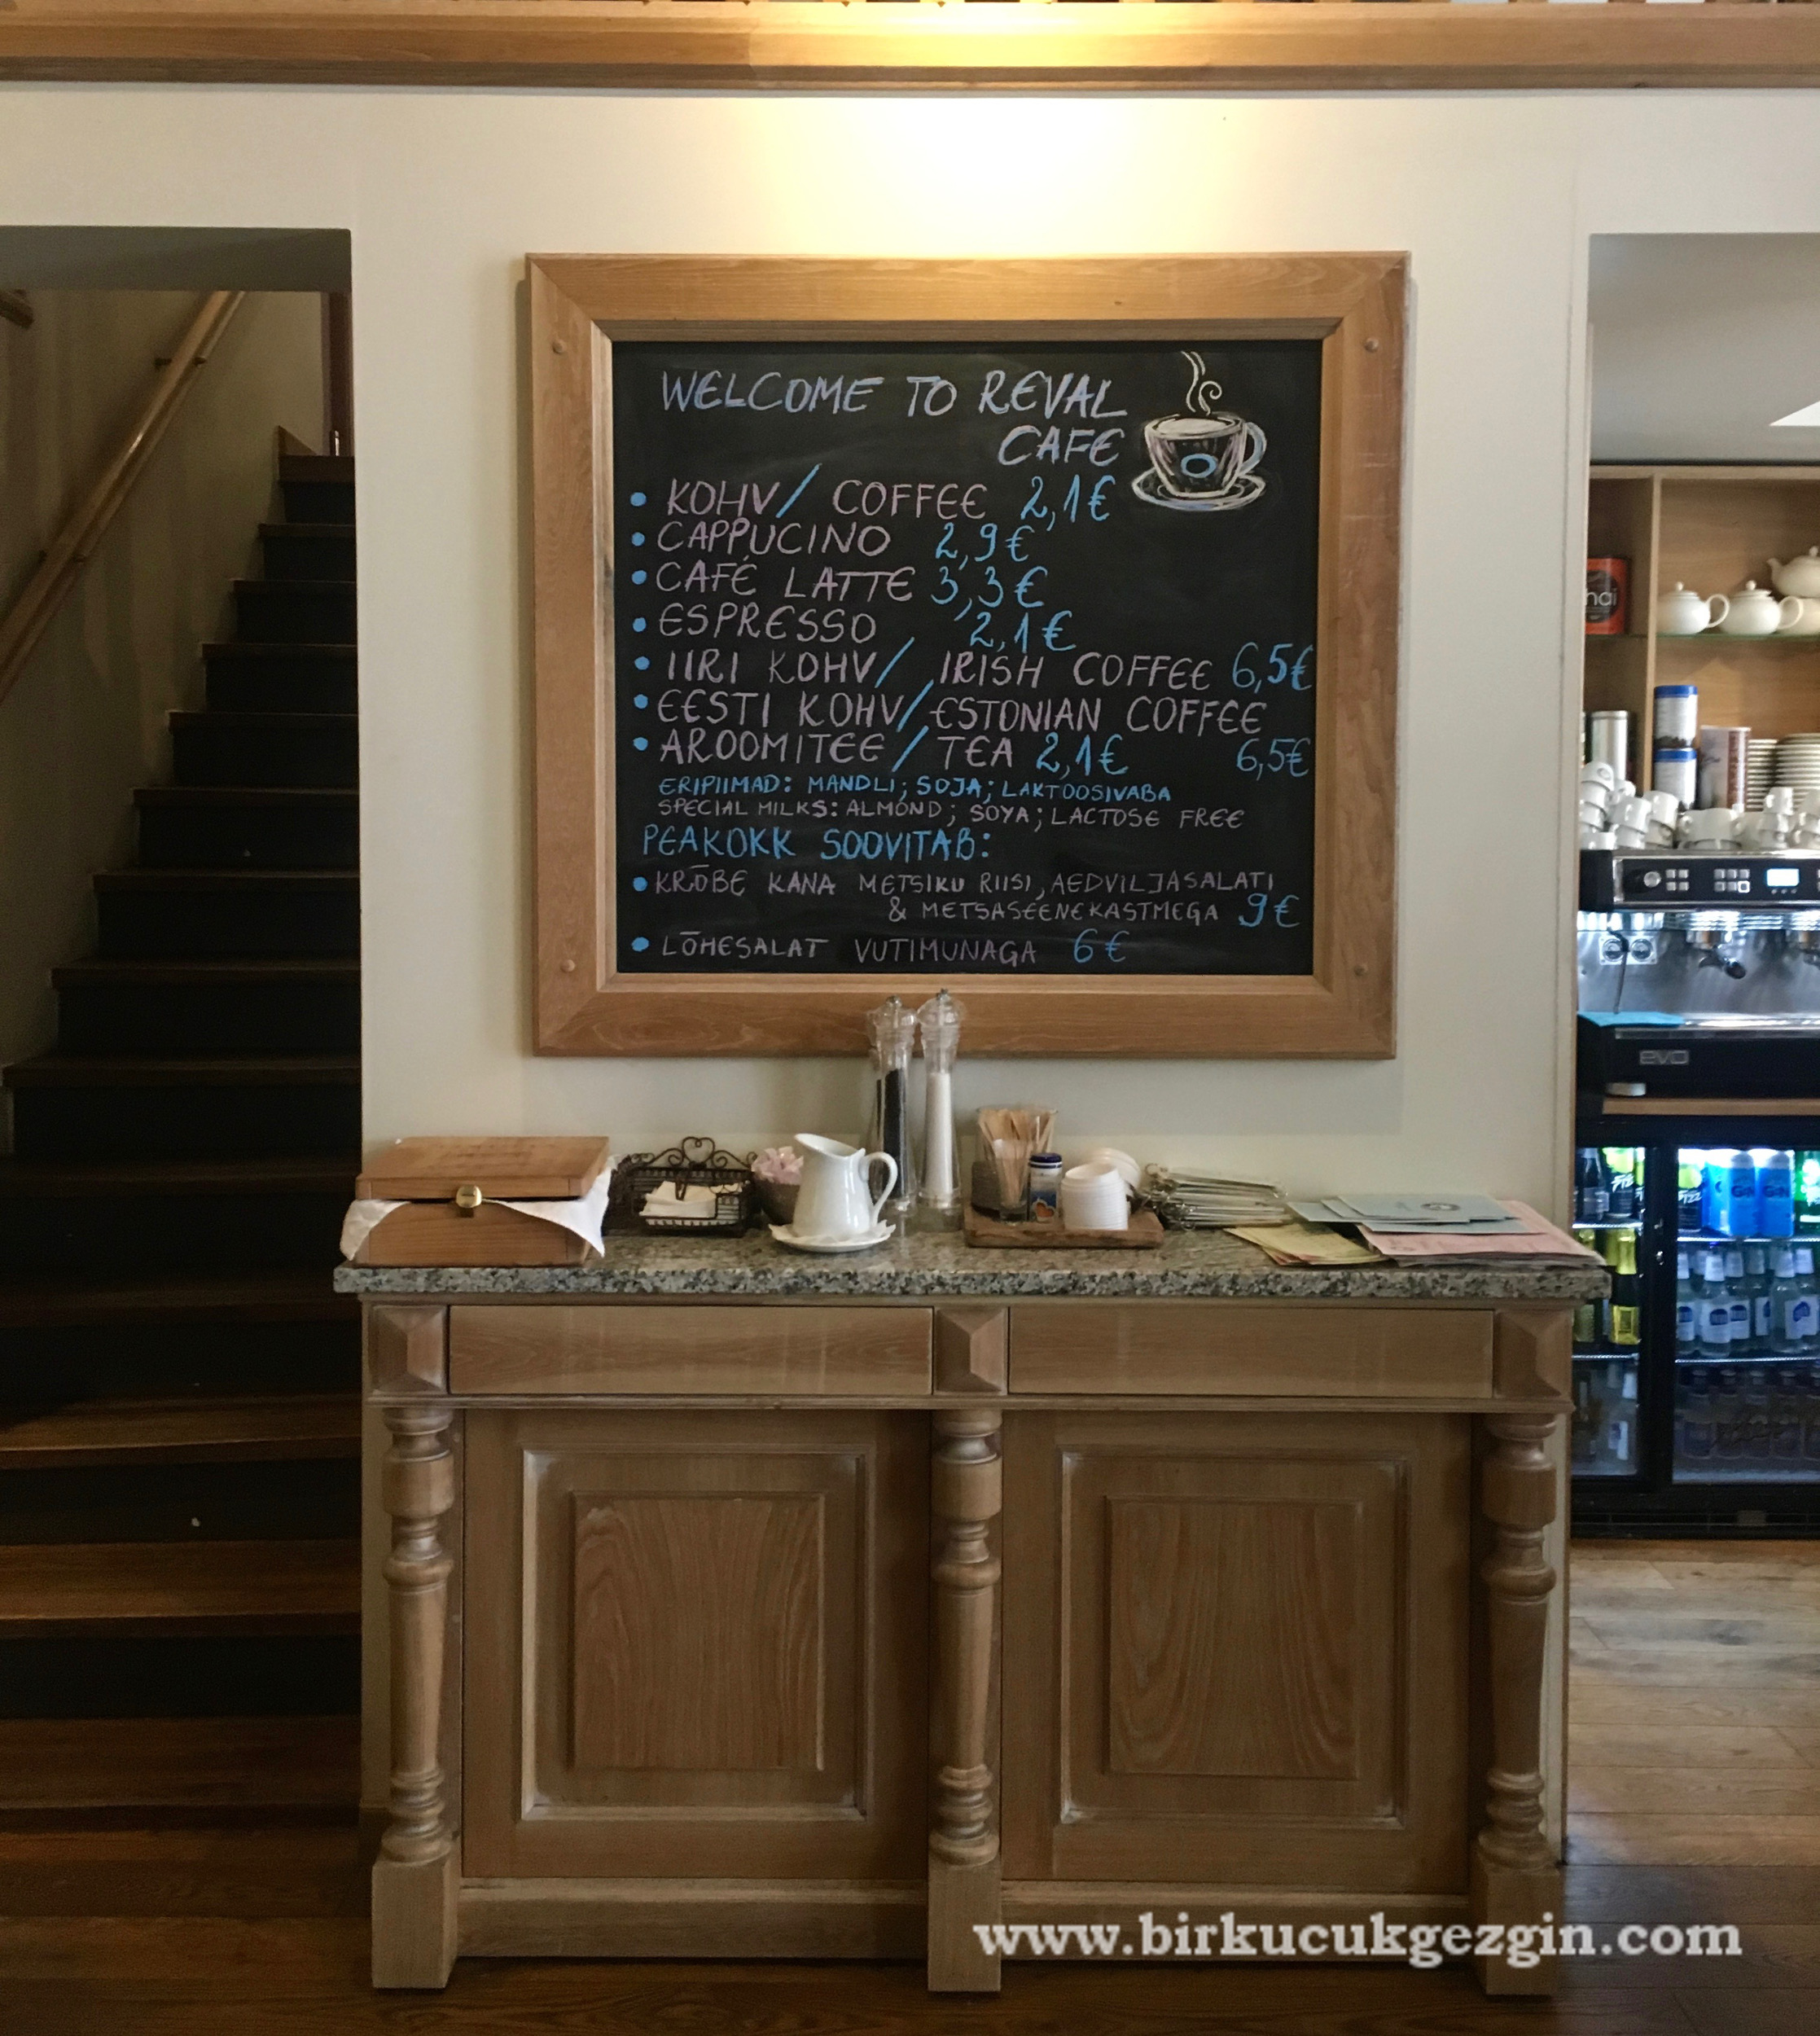 WELCOME TO REVAL
CAFE
• KOHV/ COFFEE 2,1€
• CAPPUCINO 2,9€
• CAFÉ LATTE 3,3€
• ESPRESSO 2,1€
• IIRI KOHV/ IRISH COFFEE 6,5€
• EESTI KOHV/ESTONIAN COFFEE
• AROOMITEE / TEA 2,1€ 6,5€
ERIPIIMAD: MANDLI; SOJA; LAKTOOSIVABA
SPECIAL MILKS: ALMOND; SOYA; LACTOSE FREE
PEAKOKK SOOVITAB:
• KRÕBE KANA METSIKU RIISI, AEDVILJASALATI
& METSASEENEKASTMEGA 9€
• LÕHESALAT VUTIMUNAGA 6€
evo
FIZZ
GIN
GIN
www.birkucukgezgin.com